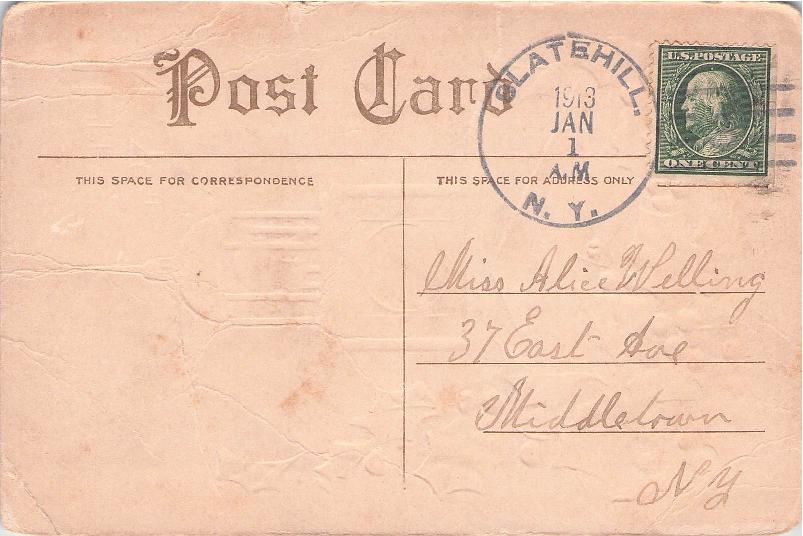 Post Card
SLATEHILL.
1913
JAN
1
A.M.
N. Y.
U.S. POSTAGE
ONE CENT
THIS SPACE FOR CORRESPONDENCE
THIS SPACE FOR ADDRESS ONLY
Miss Alice Welling
37 East Ave
Middletown
N Y